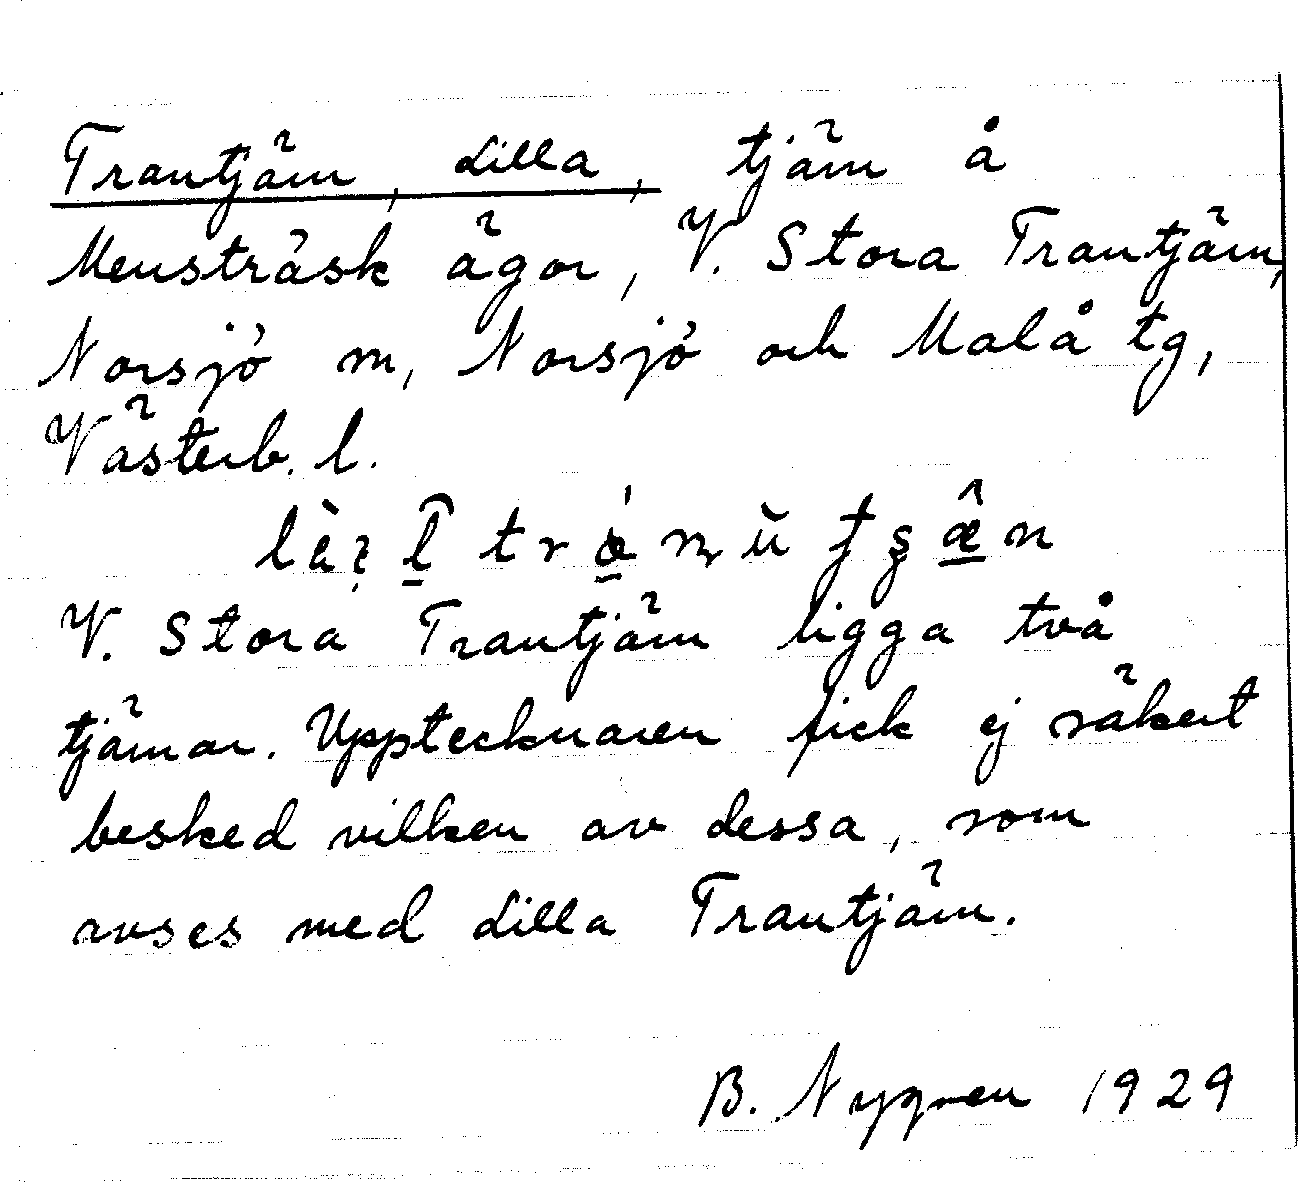 Trantjärn, Lilla, tjärn å
Mensträsk ägor, V. Stora Trantjärn,
Norsjö sn, Norsjö och Malå tg,
Västerb. l.
V. Stora Trantjärn ligga två
tjärnar. Upptecknaren fick ej säkert
besked vilken av dessa, som
avses med Lilla Trantjärn.
B. Nygren 1929